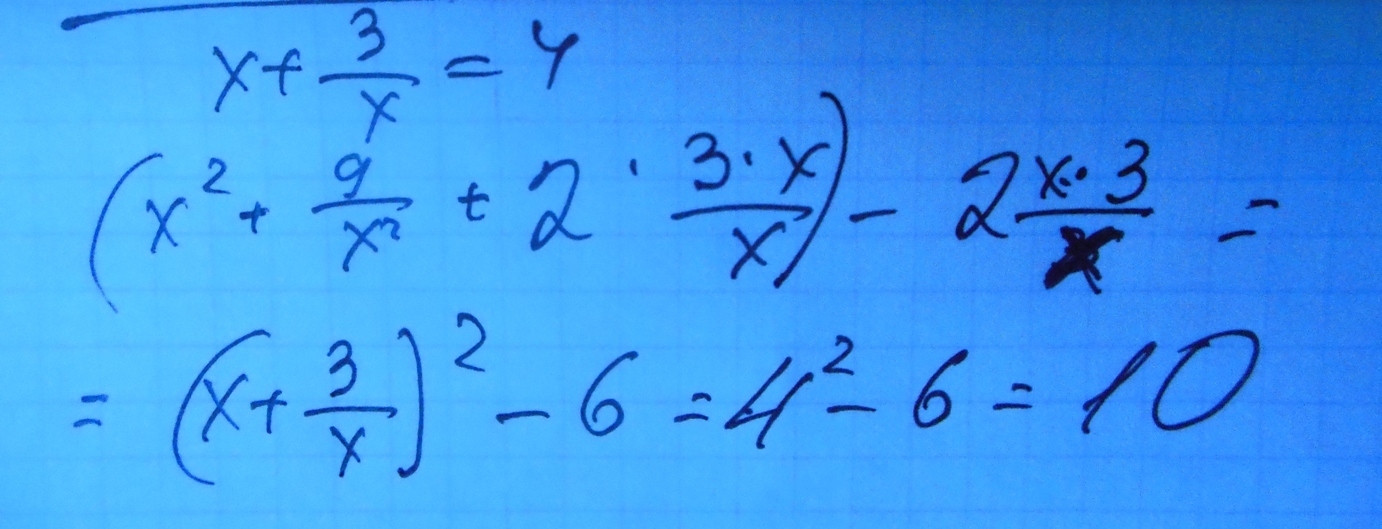 x + 3/x = 4
(x² + 9/x² + 2 · 3·x/x) - 2 x·3/x =
= (x + 3/x)² - 6 = 4² - 6 = 10